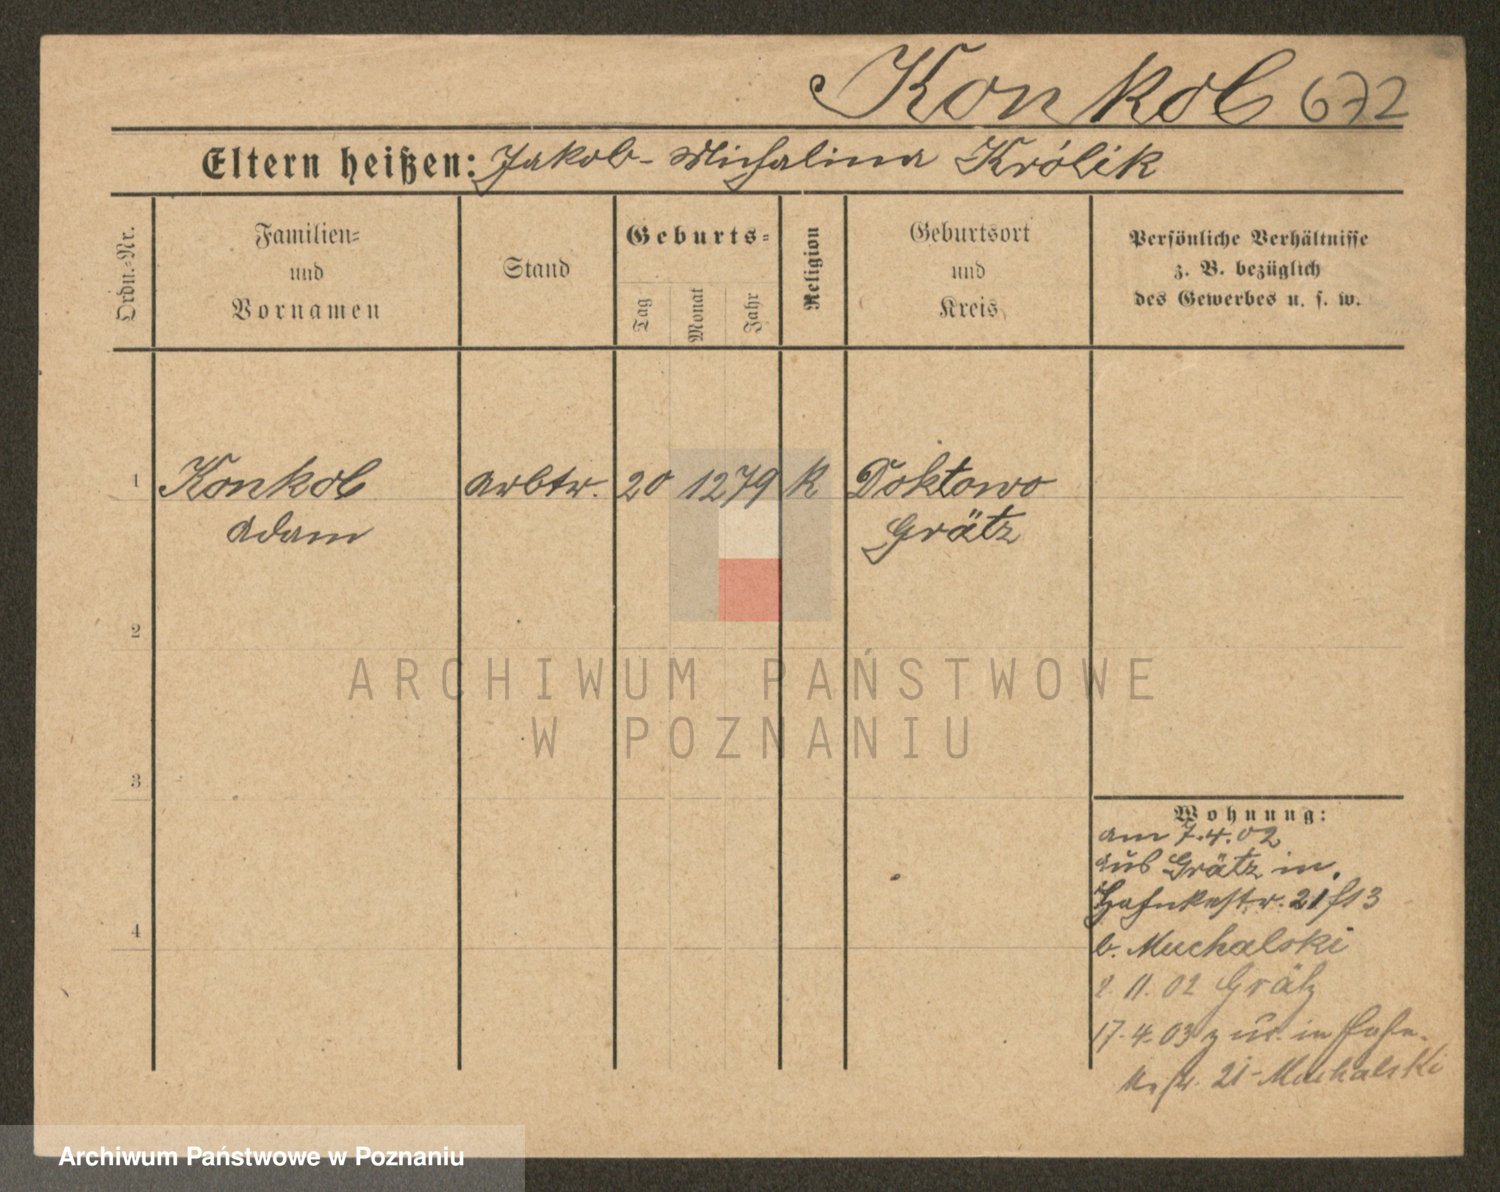 Konkol 672
Eltern heißen: Jakob - Michalina Królik
Ordn.-Nr.
Familien-
und
Vornamen
Stand
Geburts-
Tag
Monat
Jahr
Religion
Geburtsort
und
Kreis
Persönliche Verhältnisse
z. B. bezüglich
des Gewerbes u. s. w.
1 Konkol Arbtr. 20 12 79 K Doktowo
Adam Grätz
2
3
4
Wohnung:
am 7.4.02
aus Grätz in
Hahnkestr. 21
b. Muchalski
11. 02 Grätz
17.4.03 zur. in
21 - Muchalski
ARCHIWUM PAŃSTWOWE
W POZNANIU
Archiwum Państwowe w Poznaniu